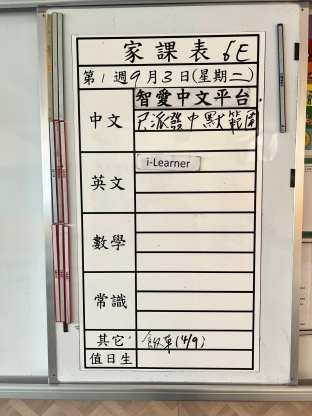 家課表 6E
第1週9月3日(星期二)
中文
智愛中文平台
只派發中默範圍
英文
i-Learner
數學
常識
其它
飲單(4/9)
值日生